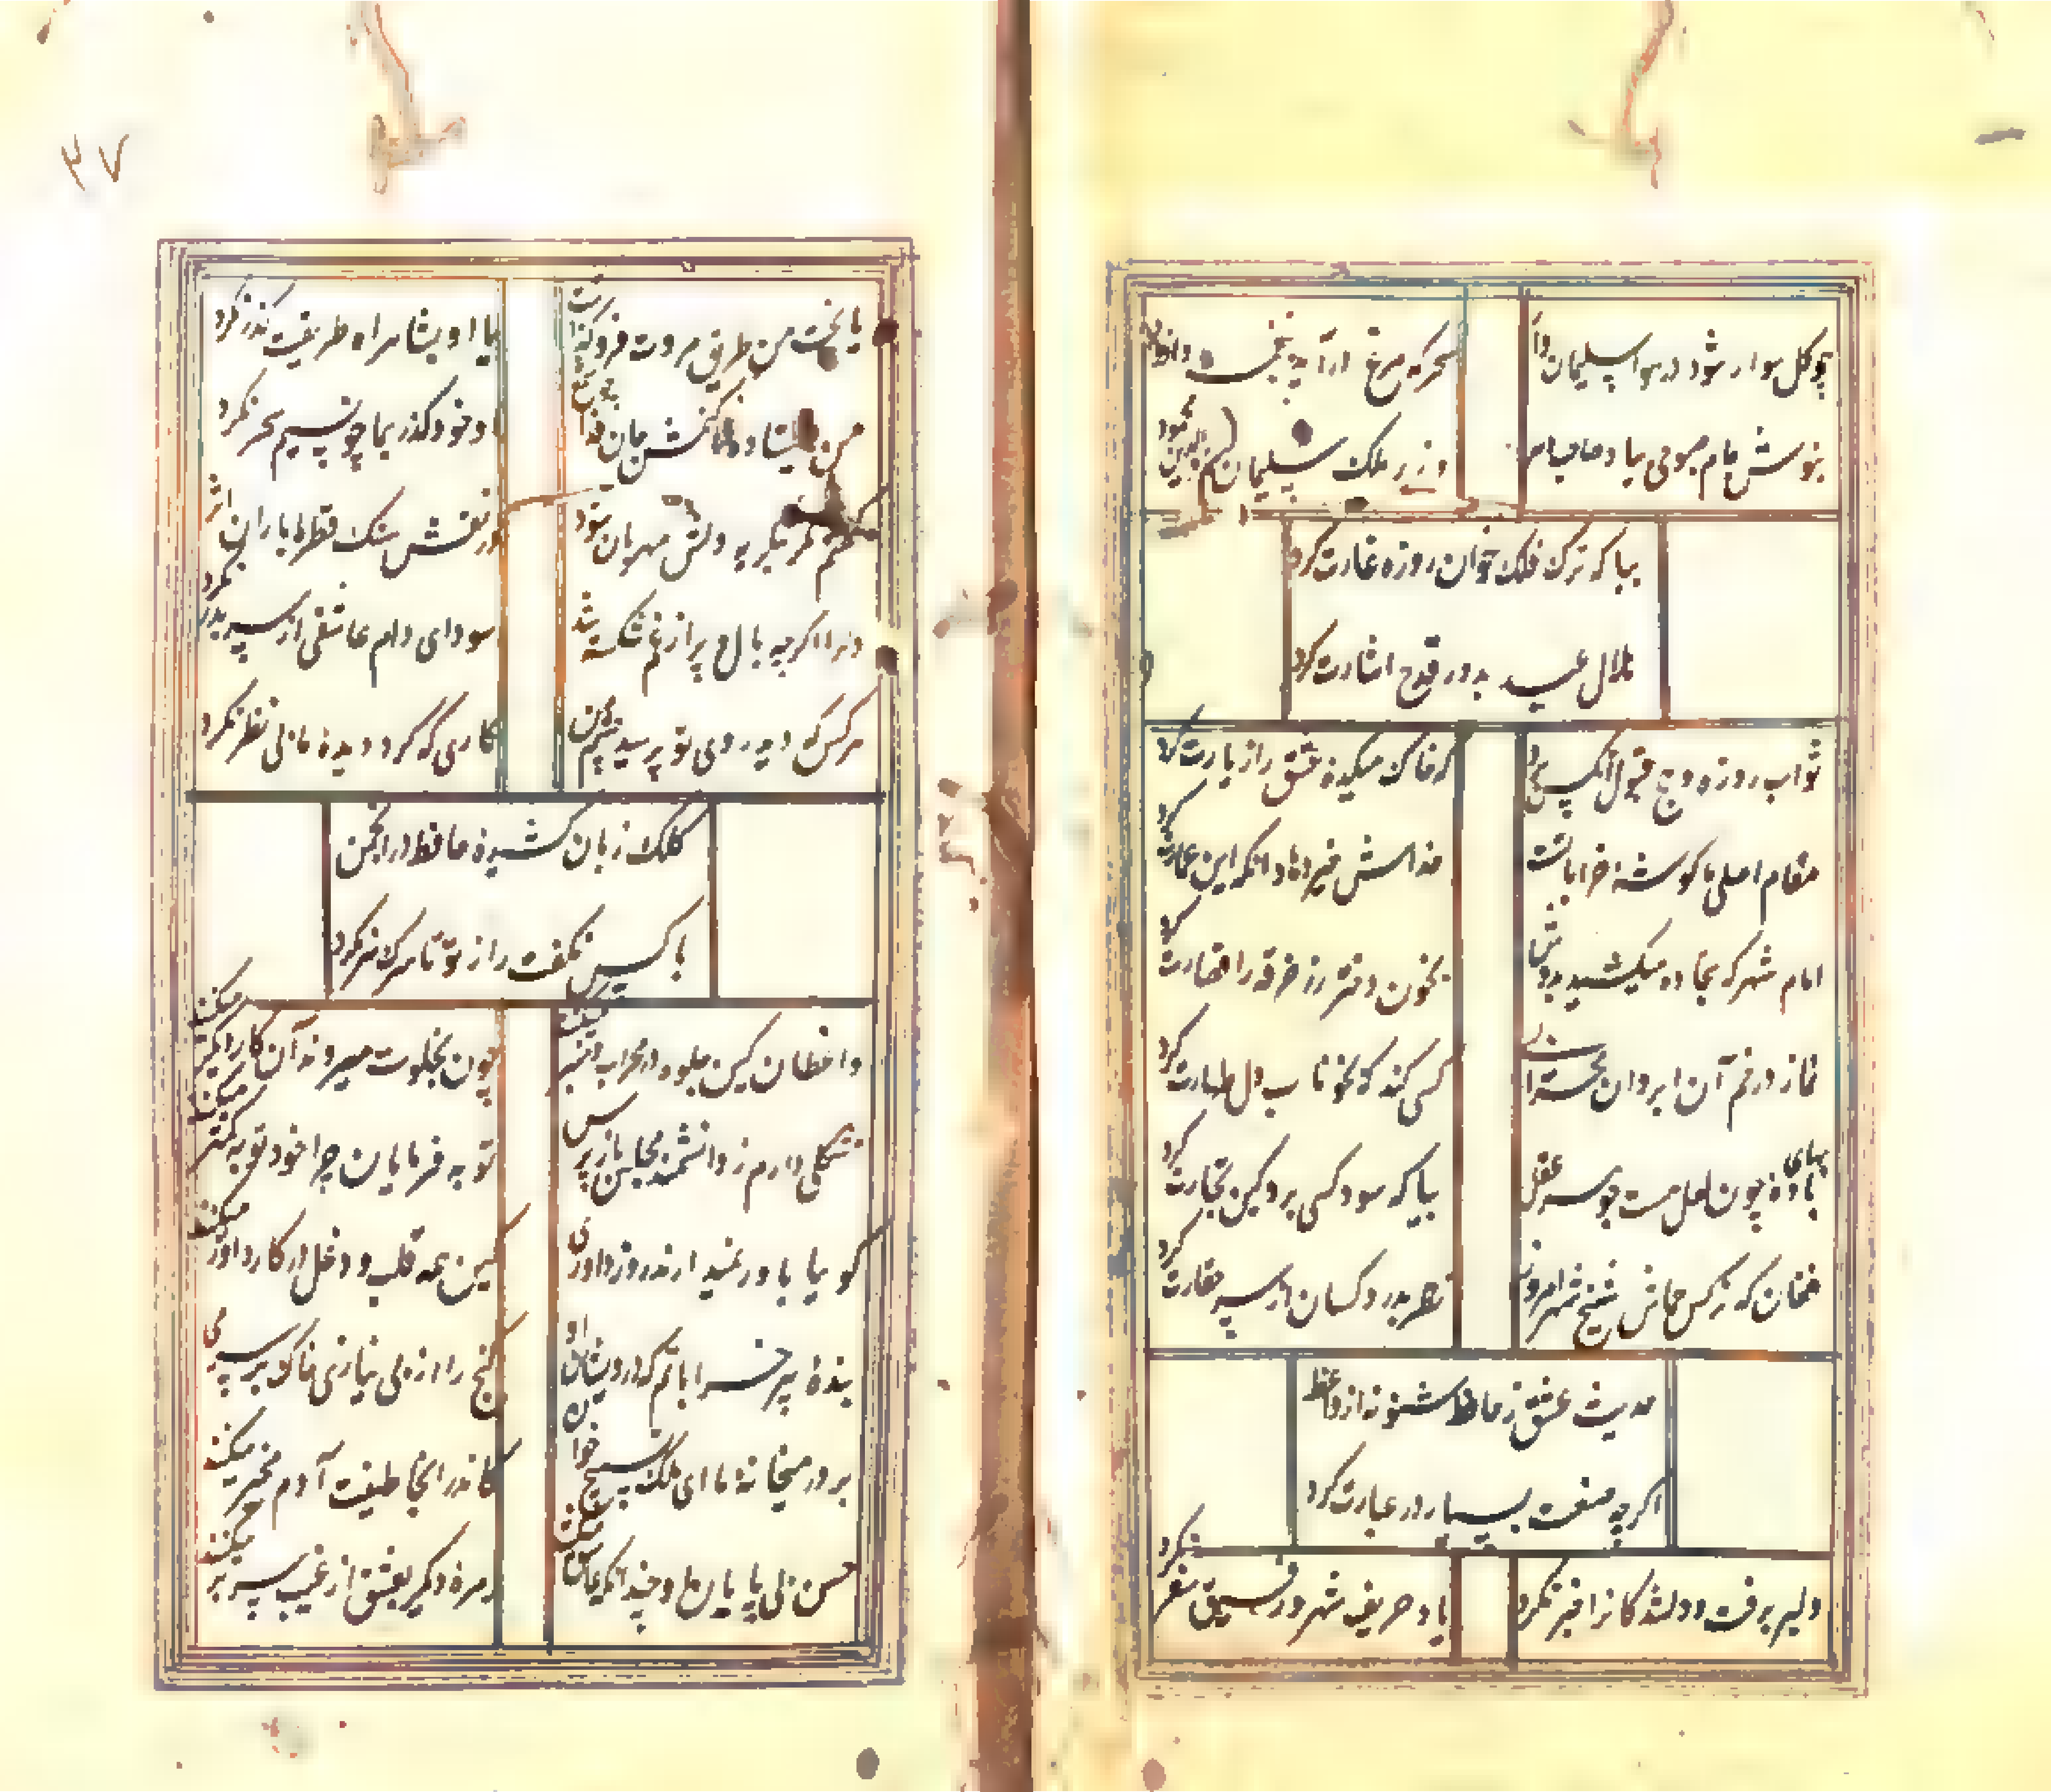 چو گل سوار شود در هوا سلیمان وار
سحر که مرغ درآید بنغمه داود
بنوش جام صبوحی بیاد آصف
وزیر ملک سلیمان محمود
بیا که ترک فلک خوان روزه غارت کرد
هلال عید بدور قدح اشارت کرد
ثواب روزه و حج قبول آنکس برد
که خاک میکده عشق را زیارت کرد
مقام اصلی ما کوشه خراباتست
خداش خیر دهاد انکه این عمارت کرد
امام شهر که سجاده میکشید بدوش
بخون دختر رز خرقه را قصارت کرد
نماز در خم آن ابروان محرابی
کسی کند که بخوناب دل طهارت کرد
بهای باده چون لعل چیست جوهر عقل
بیا که سود کسی برد کین تجارت کرد
فغان که نرکس جماش شیخ شهر امروز
نظر بدرد کشان از سر حقارت کرد
حدیث عشق ز حافظ شنو نه از واعظ
اکرچه صنعت بسیار در عبارت کرد
دلبر برفت و دلشدکانرا خبر نکرد
یاد حریف شهر و رفیق سفر نکرد
۳۷
یا بخت من طریق مروت فرو گذاشت
یا او بشاهراه طریقت گذر نکرد
من ایستاده تا کنمش جان فدا چو شمع
او خود گذر بما چو نسیم سحر نکرد
گفتم مگر بگریه دلش مهربان شود
در نقش سنک قطره باران اثر نکرد
دل را اگرچه بال و پر از غم شکسته شد
سودای دام عاشقی از سر بدر نکرد
هرکس که دید روی تو بوسید چشم من
کاری که کرد دیده ما بی نظر نکرد
کلک زبان کشیده حافظ در انجمن
با کس نکفت راز تو تا ترک سر نکرد
واعظان کین جلوه در محراب و منبر میکنند
چون بخلوت میروند آن کار دیگر میکنند
مشکلی دارم ز دانشمند مجلس باز پرس
توبه فرمایان چرا خود توبه کمتر میکنند
گویا باور نمیدارند روز داوری
کین همه قلب و دغل در کار داور میکنند
بنده پیر خراباتم که درویشان او
گنج را از بی نیازی خاک بر سر میکنند
بر در میخانه ما ای ملک تسبیح خوان
کاندر انجا طینت آدم مخمر میکنند
حسن بی پایان او چندانکه عاشق میکشد
زمره دیگر بعشق از غیب سر بر میکنند